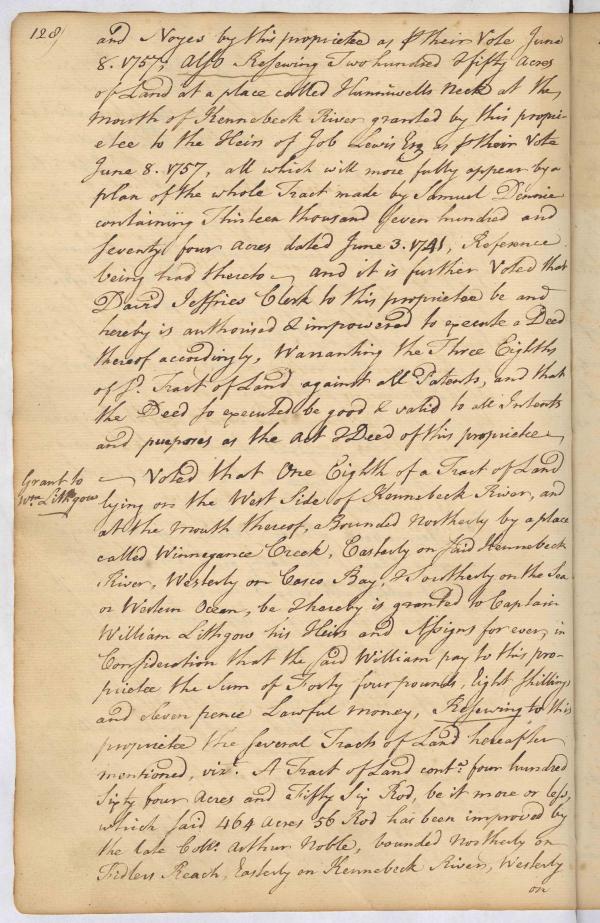 128)
and Noyes by this proprietee as ⅌ their Vote June
8. 1757; Also Reserving Two hundred & fifty Acres
of Land at a place called Hunniwells Neck at the
mouth of Kennebeck River granted by this propri-
etee to the Heirs of Job Lewis Esq as ⅌ their Vote
June 8. 1757, all which will more fully appear by a
plan of the whole Tract made by Samuel Dennie
containing Thirteen thousand seven hundred and
seventy four Acres dated June 3. 1741, Reference
being had thereto, and it is further Voted that
David Jeffries Clerk to this proprietee be and
hereby is authorised & impowered to execute a Deed
thereof accordingly, Warranting the Three Eighths
of sd. Tract of Land against all Patents, and that
the Deed so executed be good & valid to all Intents
and purposes as the Act & Deed of this proprietee
Grant to
Wm. Lithgow
Voted that One Eighth of a Tract of Land
lying on the West Side of Kennebeck River, and
at the mouth thereof, Bounded Northerly by a place
called Winnegance Creek, Easterly on said Kennebeck
River, Westerly on Casco Bay, & Southerly on the Sea
or Western Ocean, be & hereby is granted to Captain
William Lithgow his Heirs and Assigns for ever, in
Consideration that the said William pay to this pro-
prietee the Sum of Forty four pounds, Eight Shillings
and eleven pence Lawful money, Reserving to this
proprietee the several Tracts of Land hereafter
mentioned, vizt. A Tract of Land conta. four hundred
Sixty four Acres and Fifty Six Rod, be it more or less,
which said 464 Acres 56 Rod has been improved by
the late Collo. Arthur Noble, bounded Northerly on
Fidlers Reach, Easterly on Kennebeck River, Westerly
on